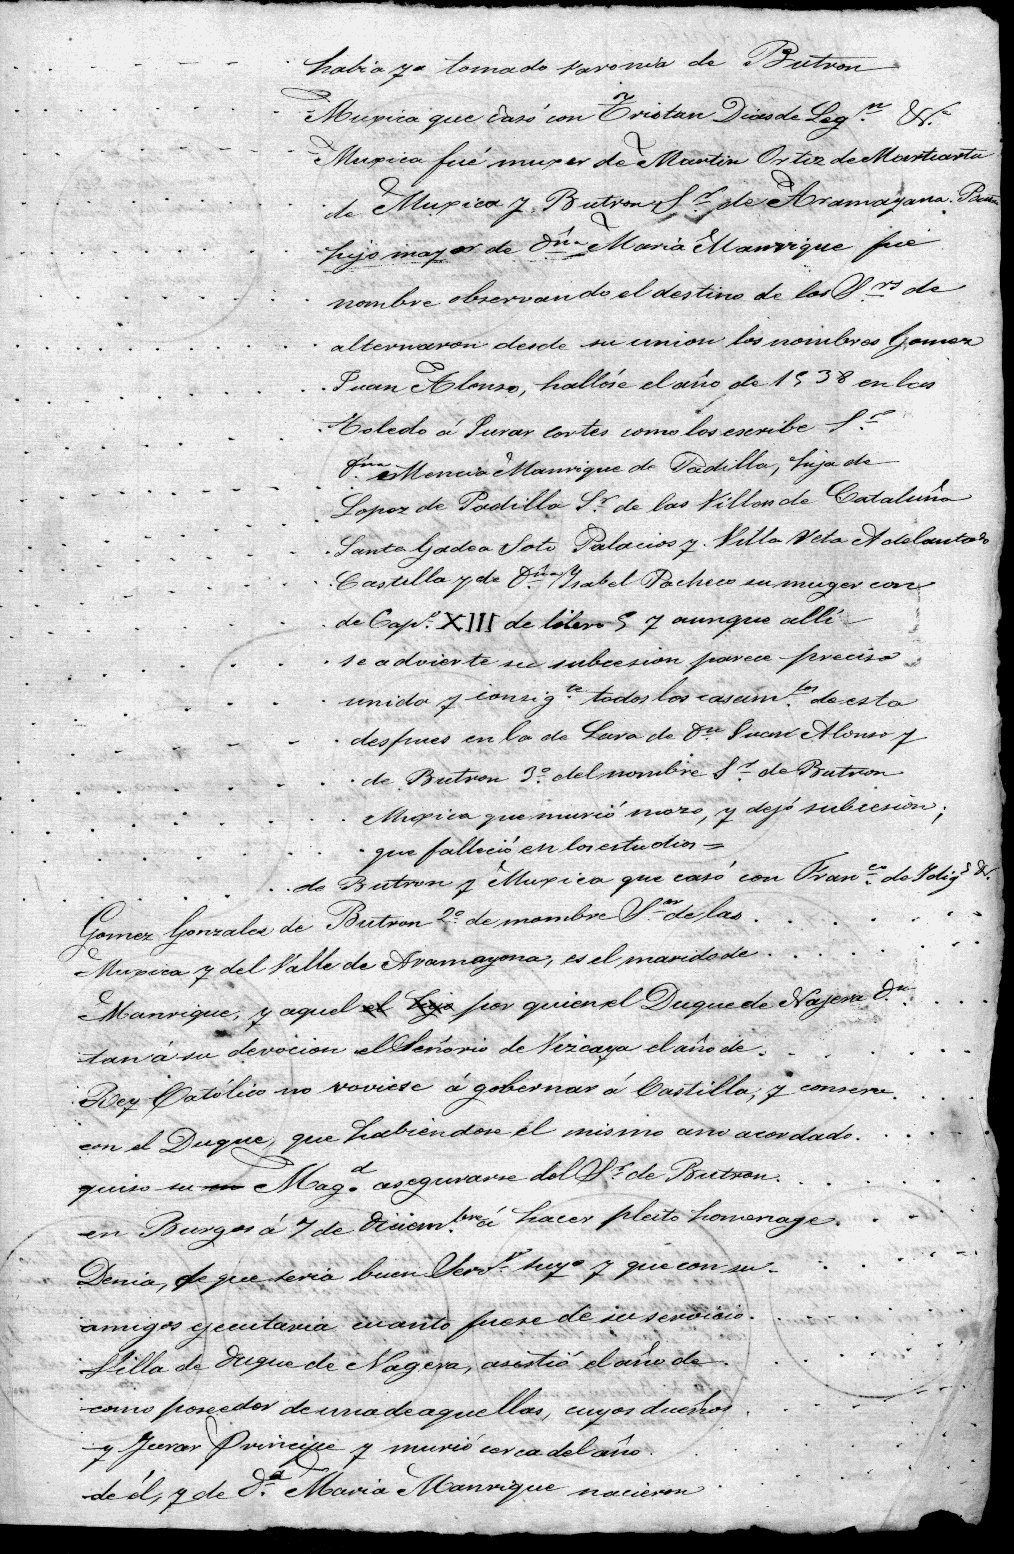 habia ya tomado varonia de Butron
Muxica que casó con Tristan Dias de Leg.n &.a
Muxica fué muxer de Martin Ortiz de Martiartu
de Muxica y Butron S.r de Aramayona.
hijo mayor de dña Maria Manrique fué
nombre observando el destino de los S.rs de
alternaron desde su union los nombres Gomez
Juan Alonso, hallóse el año de 1538 en las
Toledo á Jurar Cortes como los escribe S.r
dña Mencia Manrique de Padilla, hija de
Lopez de Padilla S.r de las Villas de Cataluña
Santa Gadea Soto Palacios y Villa Vela Adelantado
Castilla y de Dña Ysabel Pacheco su muger con
de Cap.o XIII de libero 5 y aunque alli
se advierte su subcesion parece preciso
unida y consig.te todos los casam.tos de esta
despues en la de Lara de dn Juan Alonso y
de Butron 3.o del nombre S.r de Butron
Muxica que murió mozo, y dejó subcesion;
que falleció en los estudios =
de Butron y Muxica que casó con Fran.co de Idig.s &.
Gomez Gonzales de Butron 2.o de mombre S.or de las
Muxica y del Valle de Aramayona, es el marido de
Manrique, y aquel el hijo por quien el Duque de Najera dn
tan á su devocion el Señorio de Vizcaya el año de
Rey Católico no voviese á gobernar á Castilla, y conserv
con el Duque, que habiendose el mismo ano acordado.
quiso su Mag.d asegurarse del S.r de Butron.
en Burgos á 7 de diciem.bre á hacer pleito homenage.
Denia, de que seria buen Serv.r suyo y que con su
amigos ejecutaria cuanto fuese de su servicio.
Villa de duque de Nagera, asistió el año de
como poseedor de una de aquellas, cuyos dueños
y Jurar Principe y murió cerca del año.
de él, y de d.a Maria Manrique nacieron